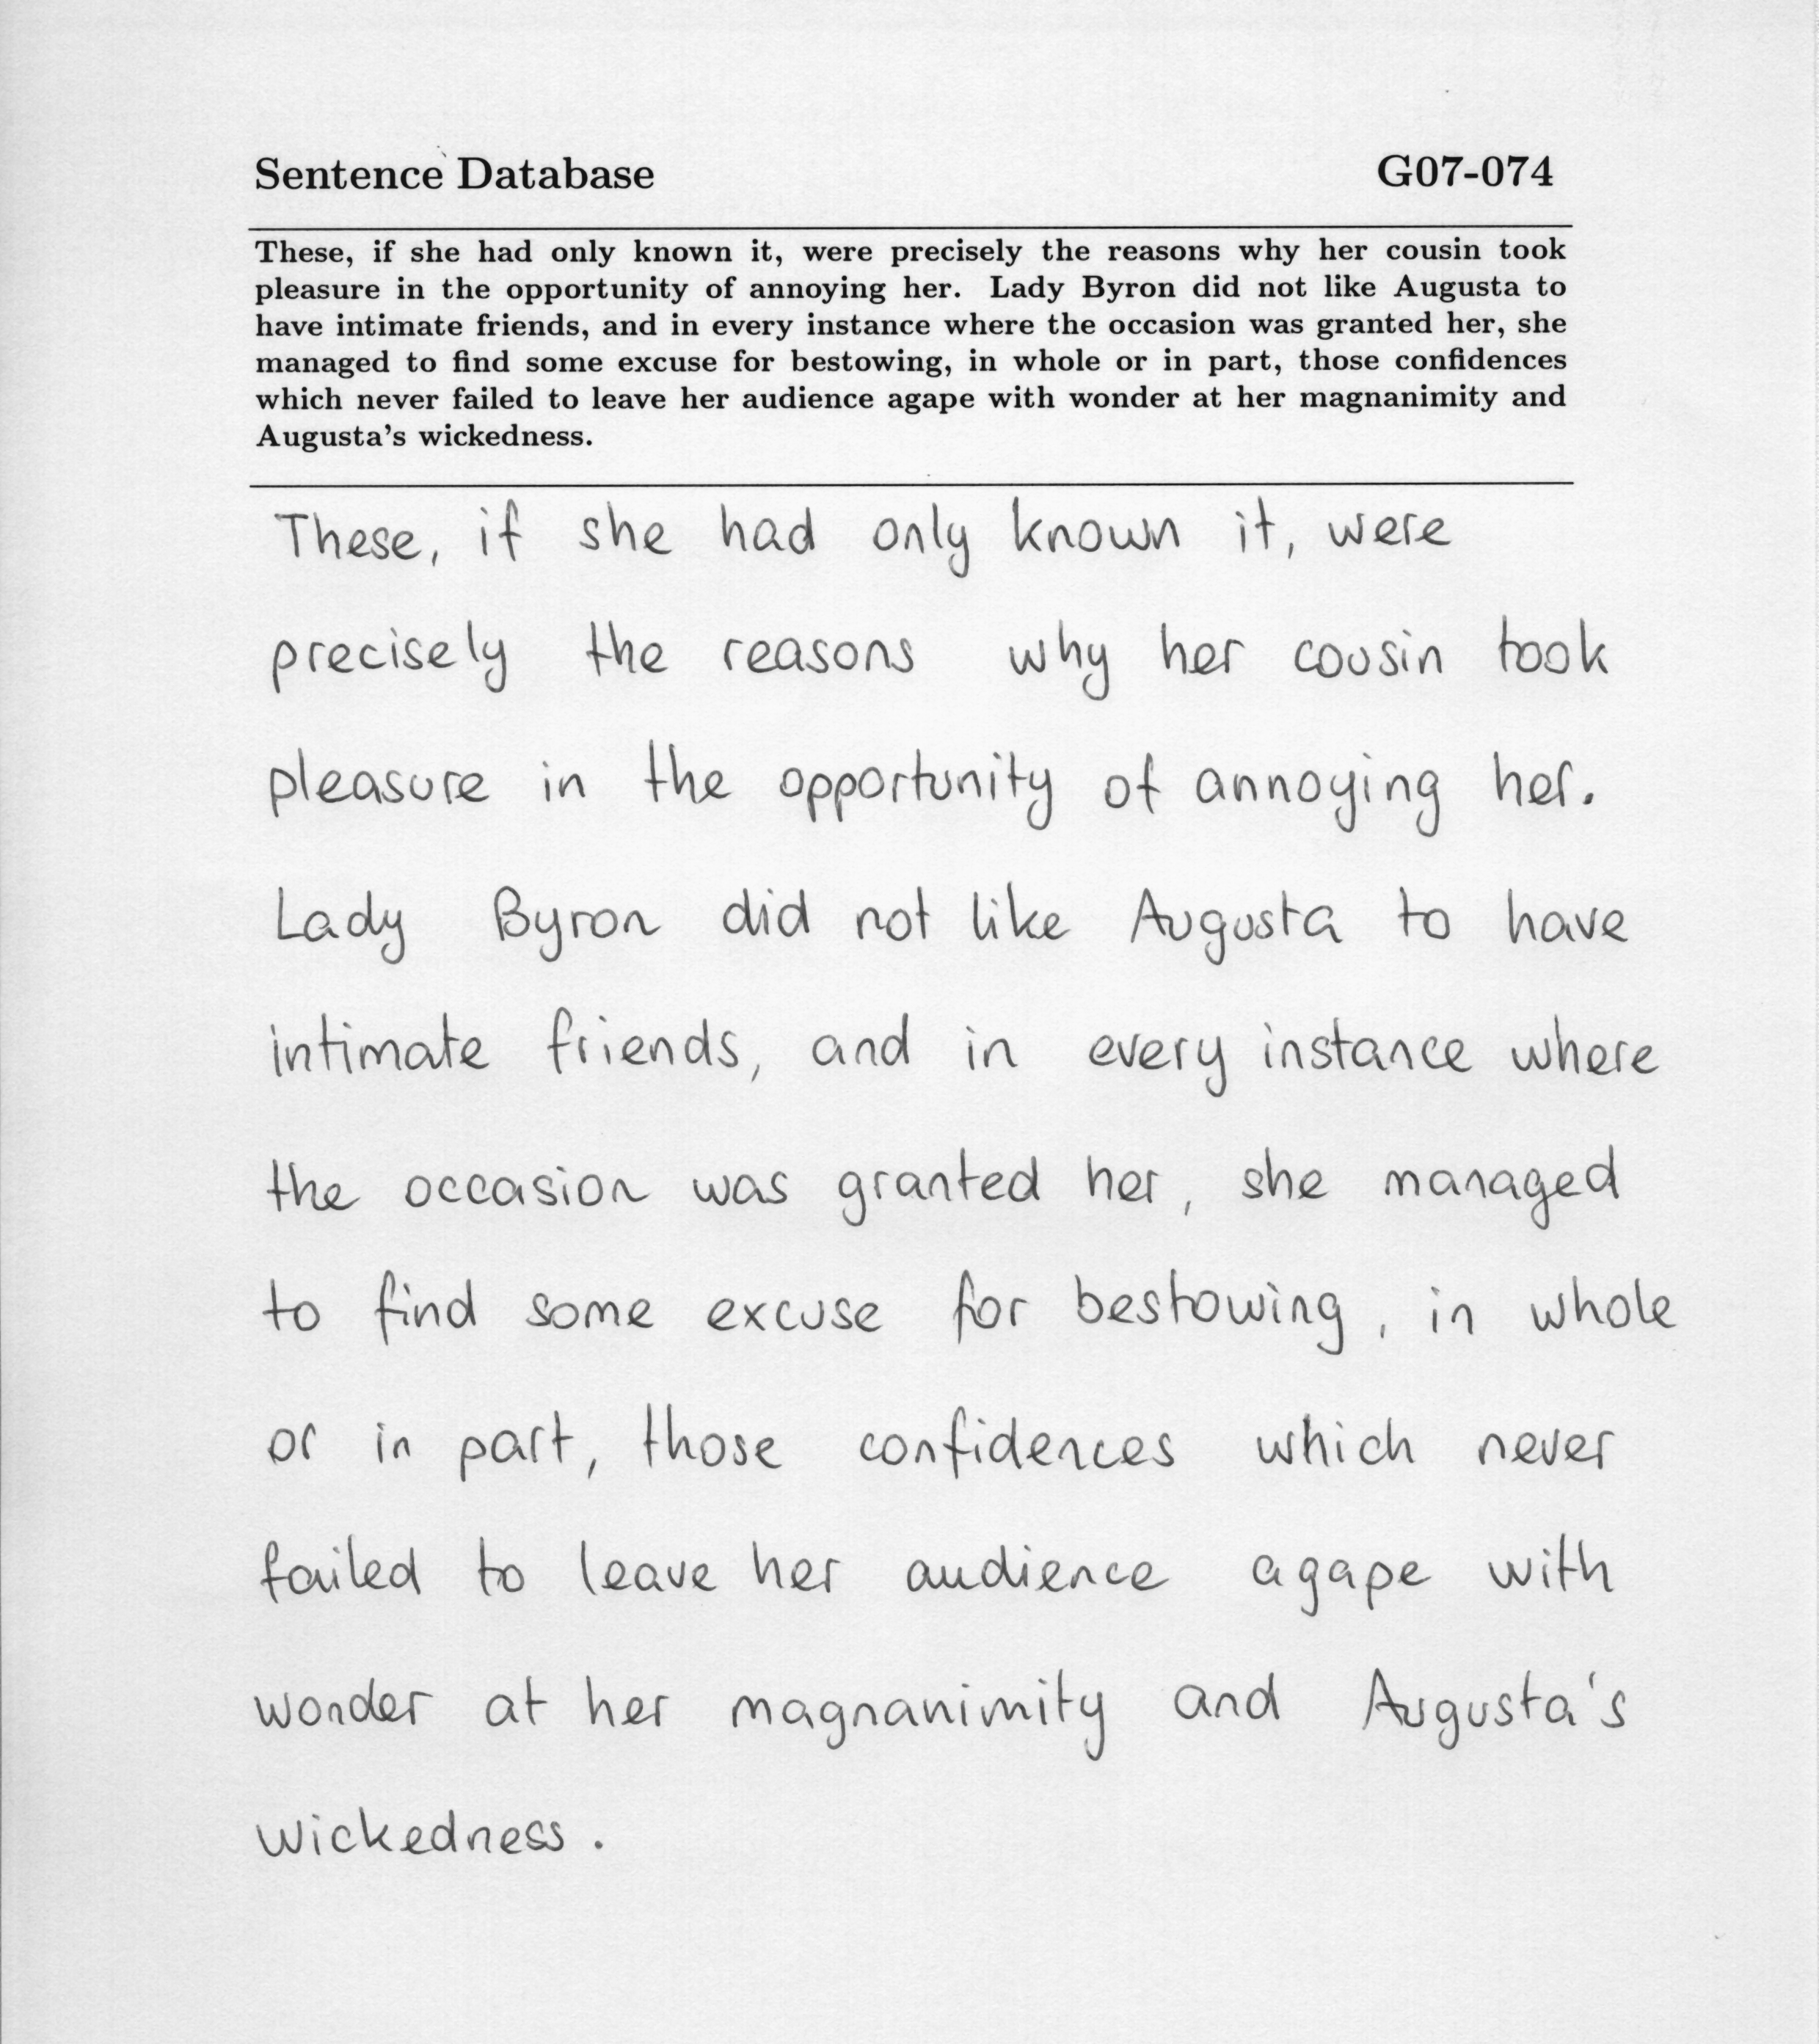 Sentence Database G07-074
These, if she had only known it, were precisely the reasons why her cousin took
pleasure in the opportunity of annoying her. Lady Byron did not like Augusta to
have intimate friends, and in every instance where the occasion was granted her, she
managed to find some excuse for bestowing, in whole or in part, those confidences
which never failed to leave her audience agape with wonder at her magnanimity and
Augusta's wickedness.
These, if she had only known it, were
precisely the reasons why her cousin took
pleasure in the opportunity of annoying her.
Lady Byron did not like Augusta to have
intimate friends, and in every instance where
the occasion was granted her, she managed
to find some excuse for bestowing, in whole
or in part, those confidences which never
failed to leave her audience agape with
wonder at her magnanimity and Augusta's
wickedness.